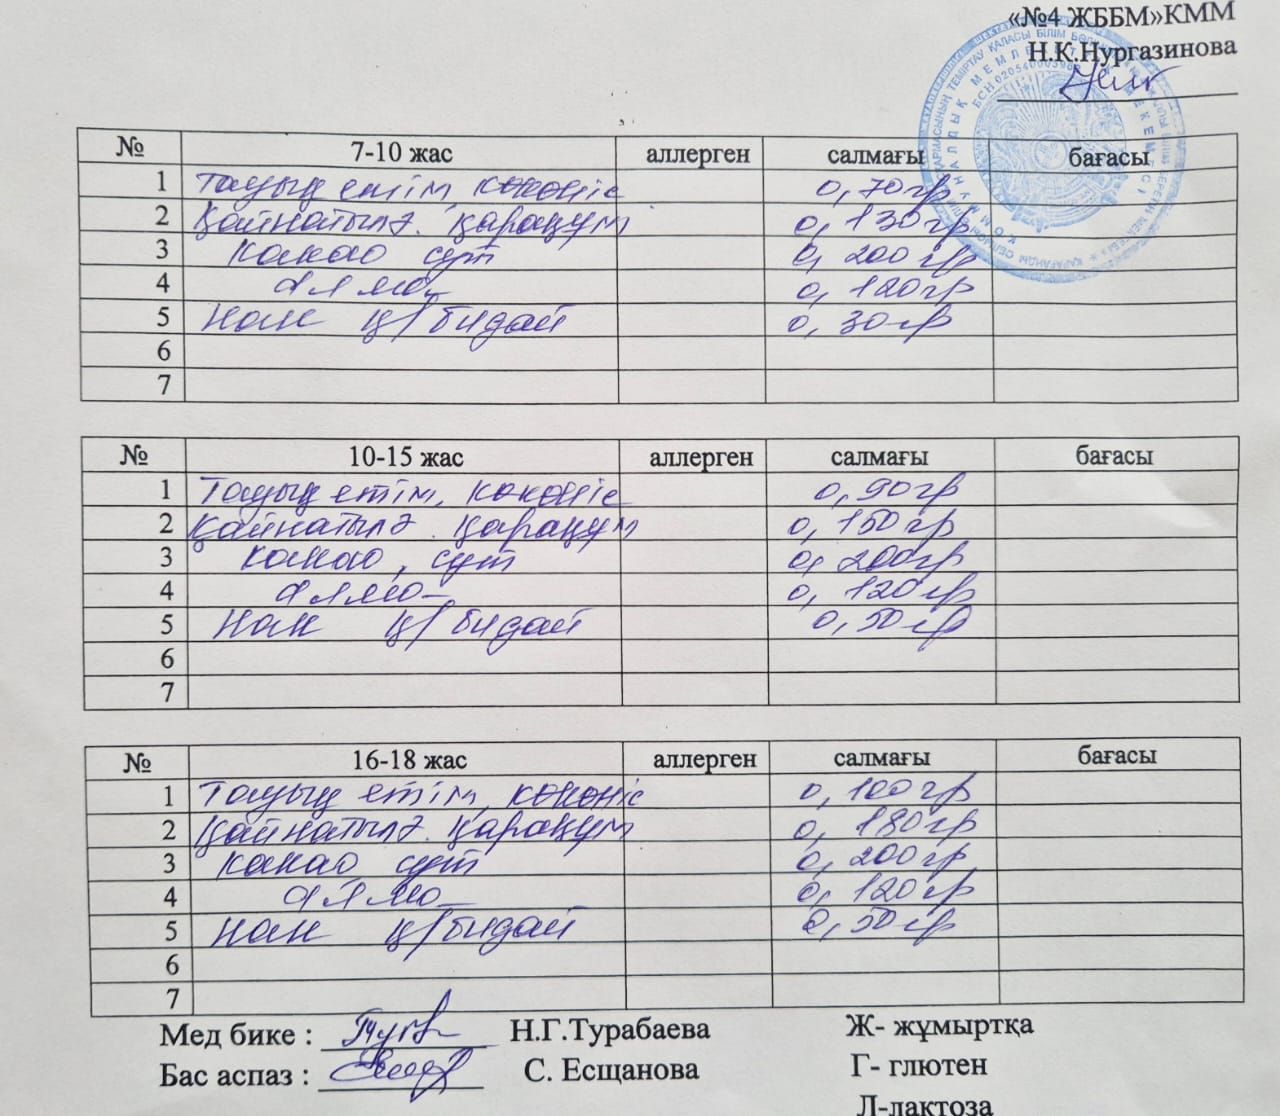 «№4 ЖББМ»КММ
Н.К.Нургазинова
№ 7-10 жас аллерген салмағы бағасы
1 Тауық етім, көкөніс 0,70гр
2 Қайнатылғ. қарақұм 0,130гр
3 какао сүт 0,200гр
4 алма 0,120гр
5 Нан қ/бидай 0,30гр
6
7
№ 10-15 жас аллерген салмағы бағасы
1 Тауық етім, көкөніс 0,90гр
2 Қайнатылғ. қарақұм 0,150гр
3 какао, сүт 0,200гр
4 алма 0,120гр
5 Нан қ/бидай 0,50гр
6
7
№ 16-18 жас аллерген салмағы бағасы
1 Тауық етім, көкөніс 0,100гр
2 Қайнатылғ. қарақұм 0,180гр
3 какао сүт 0,200гр
4 алма 0,120гр
5 Нан қ/бидай 0,50гр
6
7
Мед бике : Н.Г.Турабаева Ж- жұмыртқа
Бас аспаз : С. Есщанова Г- глютен
Л-лактоза